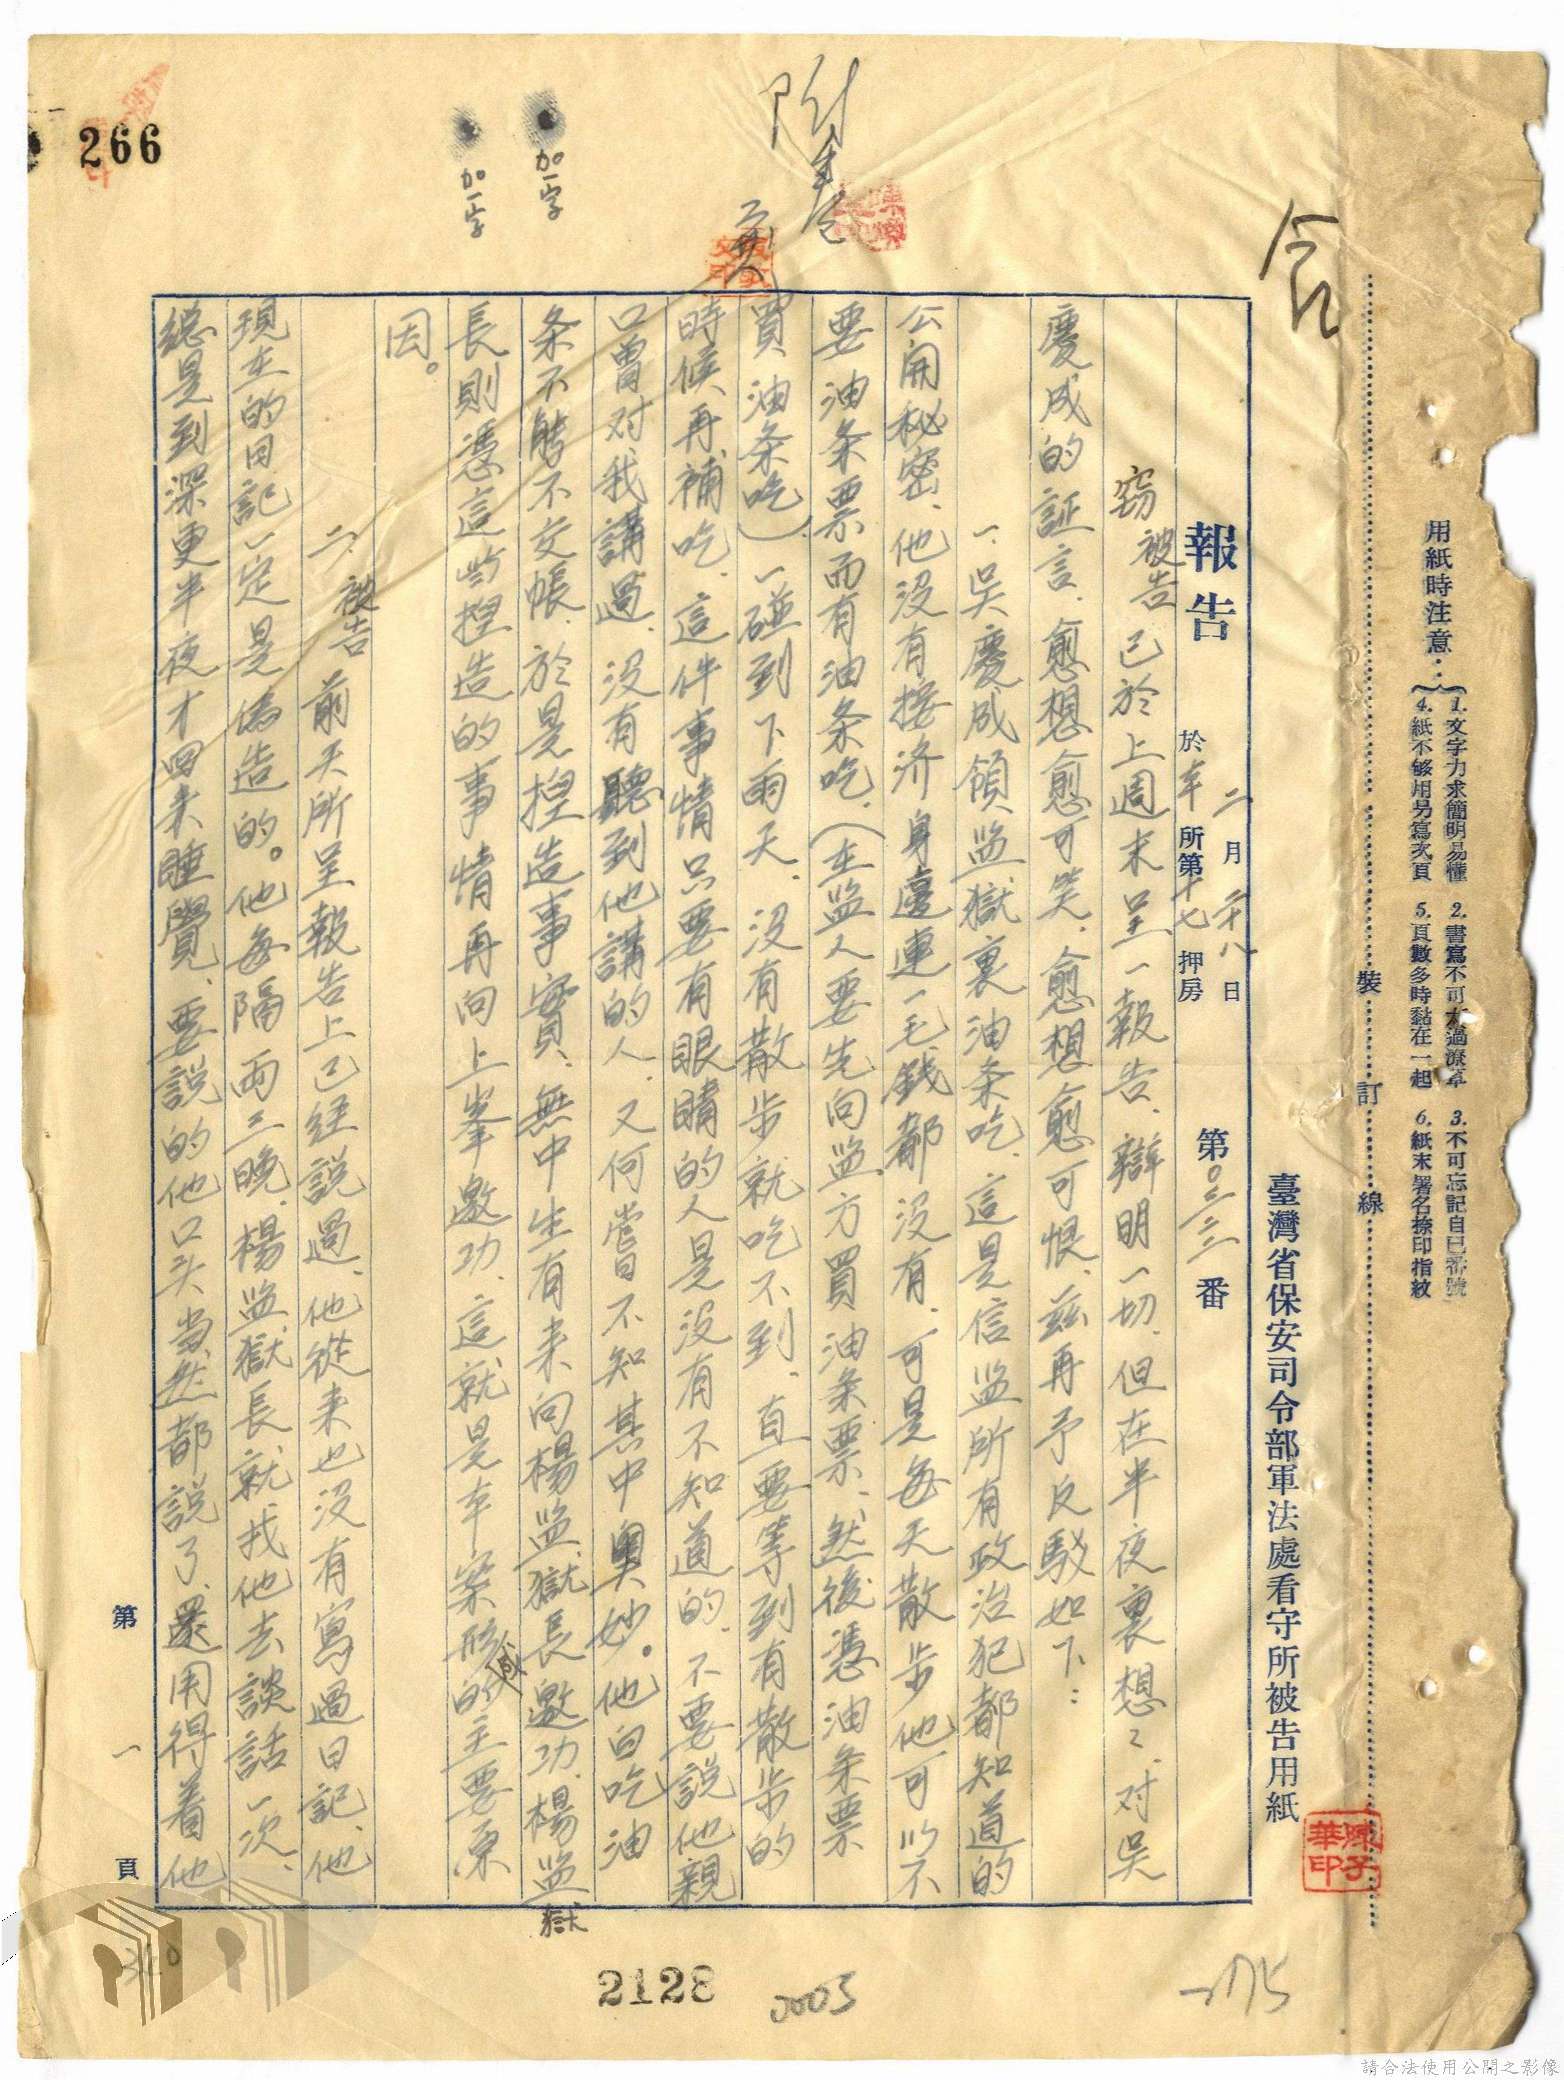 用紙時注意：
1. 文字力求簡明易懂 2. 書寫不可太過潦草 3. 不可忘記自己番號
4. 紙不够用另寫次頁 5. 頁數多時黏在一起 6. 紙末署名捺印指紋
裝 訂 線
臺灣省保安司令部軍法處看守所被告用紙
陳子華印
報告
二月廿八日
於本所第十七押房
第 番
竊被告已於上週末呈一報告、辯明一切、但在半夜裏想々、对吳
慶成的証言、愈想愈可笑、愈想愈可恨、茲再予反駁如下：
一、吳慶成領监獄裏油条吃、這是信监所有政治犯都知道的
公開秘密、他没有接济身邊連一毛錢都没有、可是每天散步他可以不
要油条票而有油条吃、（在监人要先向监方買油条票、然後憑油条票
買油条吃）、一碰到下雨天、没有散步就吃不到、直要等到有散步的
時候再補吃、這件事情只要有眼睛的人是没有不知道的、不要説他親
口曾对我講過、没有聽到他講的人、又何嘗不知其中奧妙。他白吃油
条不能不交帳、於是揑造事實、無中生有来向楊监獄長邀功、楊监獄
長則憑這些揑造的事情再向上峯邀功、這就是本案形成的主要原
因。
二、被告前天所呈報告上已経説過、他從来也没有寫過日記、他
現在的日記一定是偽造的。他每隔両三晚、楊监獄長就找他去談話一次、
總是到深更半夜才回来睡覺、要説的他口头当然都説了、還用得着他
第 一 頁
附卷
加一字
加一字
266
2128
0003
310
請合法使用公開之影像